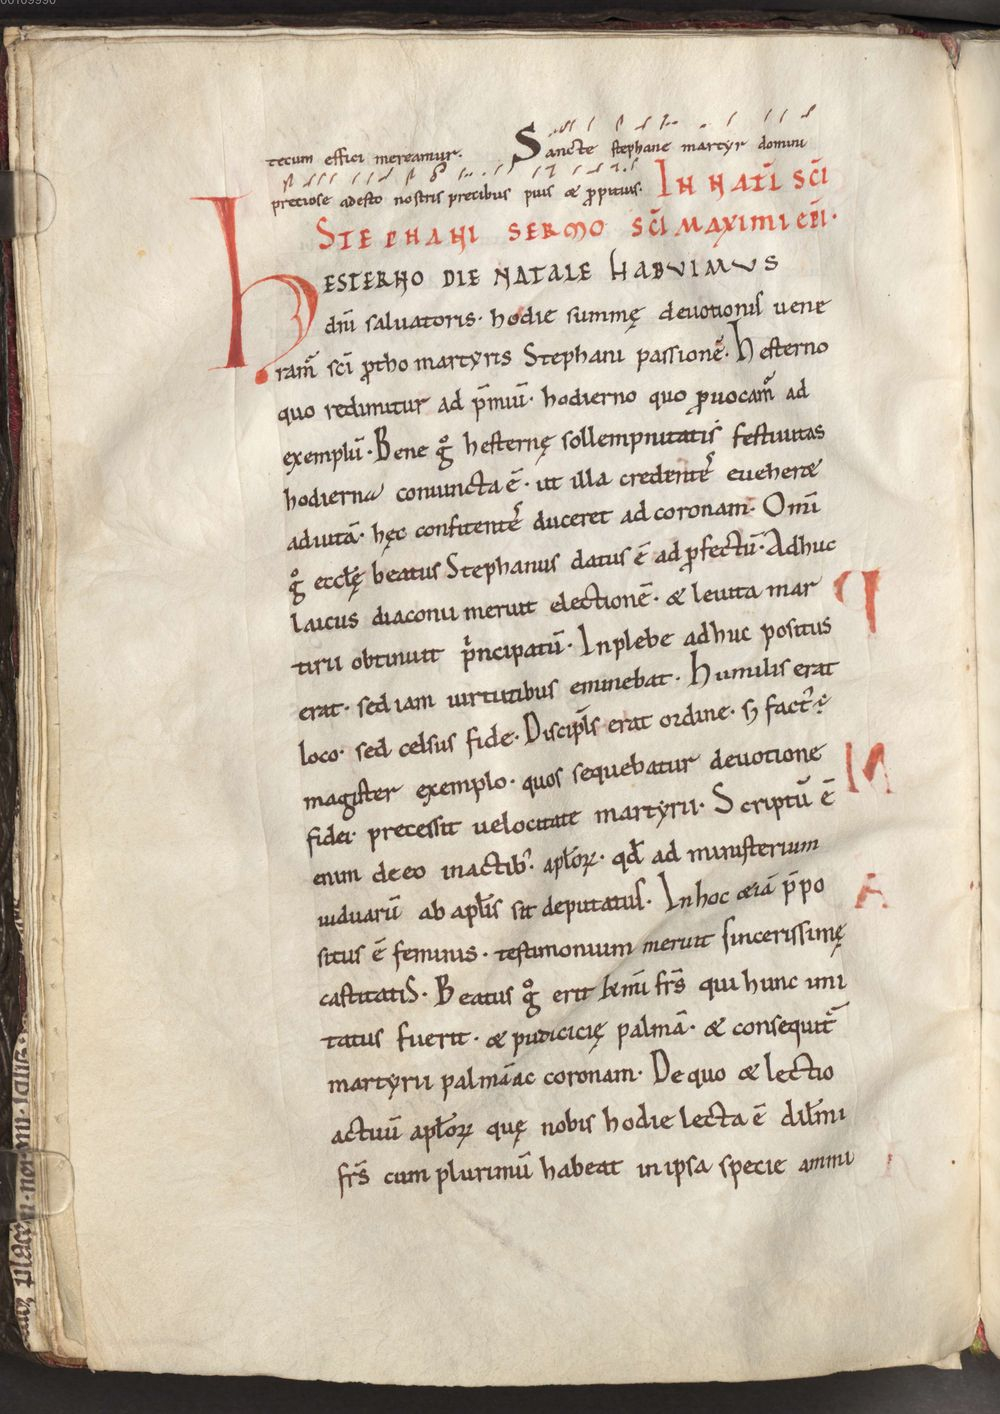 tecum effici mereamur. Sancte stephane martyr domini
preciose adesto nostris precibus pius & ꝓpitius. IN NAT̄L SC̄I
STEPHANI SERMO SC̄I MAXIMI EP̄I.
HESTERNO DIE NATALE HABUIMUS
dn̄i saluatoris· hodie summę deuotionis uene
ram̄ sc̄i ꝓtho martyris Stephani passionē. Hesterno
quo redimitur ad p̄miū· hodierno quo ꝓuocam̄ ad
exemplū. Bene gͦ hesternę sollempnitatis festiuitas
hodierna coniuncta ē· ut illa credentes eueheret
ad uitā· hęc confitentes duceret ad coronam. Om̄i
gͦ eccłę beatus Stephanus datus ē ad ꝓfectū. Adhuc
laicus diaconii meruit electionē· & leuita mar
tirii obtinuit pͥncipatū. In plebe adhuc positus
erat· sed iam uirtutibus eminebat. Humilis erat
loco· sed celsus fide. Discip̄ls erat ordine· s; fact᾽ ē
magister exemplo· quos sequebatur deuotione
fidei· precessit uelocitate martyrii. Scriptū ē
enim de eo in actib᾽· apłoꝝ· qđ ad ministerium
uiduarū ab apłis sit deputatus. In hoc &iā p̄po
situs ē feminis· testimonium meruit sincerissimę
castitatis. Beatus gͦ erit km̄i fr̄s qui hunc imi
tatus fuerit· & pudicicię palmā· & consequit̄
martyrii palmā ac coronam. De quo & lectio
actuū apłoꝝ quę nobis hodie lecta ē dił̄mi
fr̄s cum plurimū habeat in ipsa specie ammi